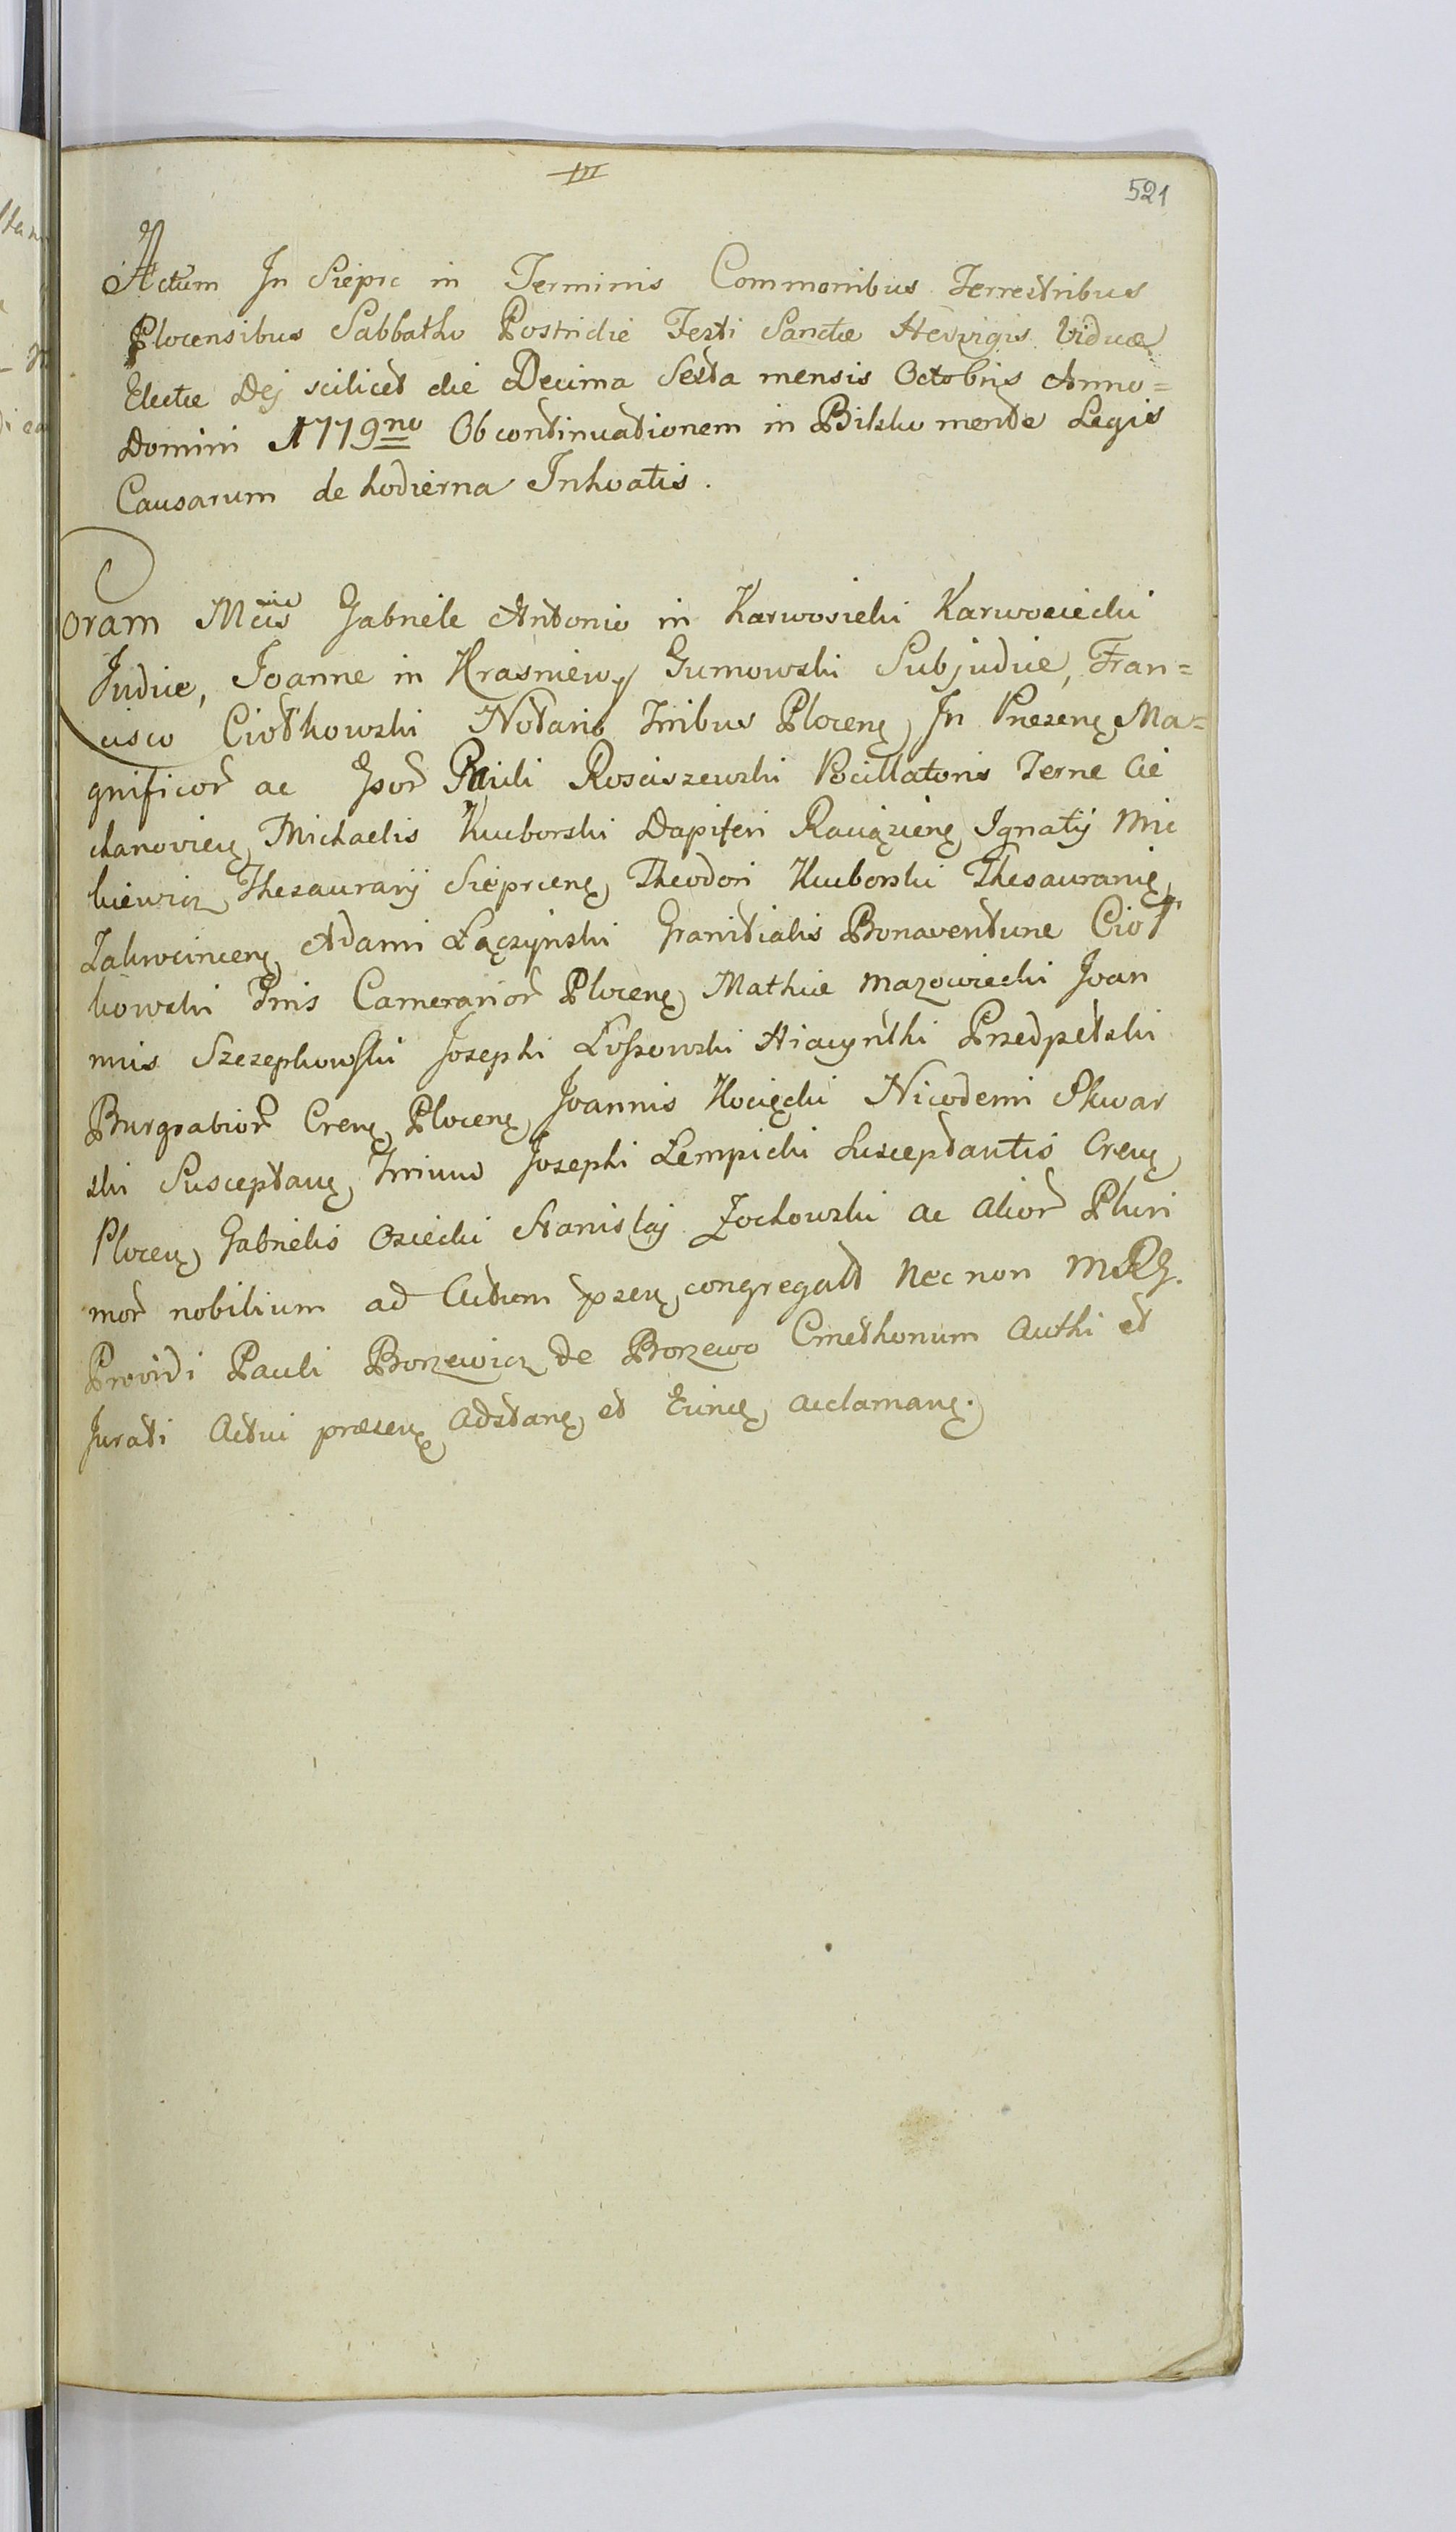 III
521
Actum In Sieprc in Terminis Commonibus Terrestribus
Plocensibus Sabbatho Postridie Festi Sanctæ Hedvigis Viduæ
Electæ Dej scilicet die Decima Sexta mensis Octobris Anno=
Domini 1779no Ob continuationem in Bilsko mente Legis
Causarum de hodierna Inhoatis.
Coram Mcis Gabriele Antonio in Karwosieki Karwosiecki
Judice, Joanne in Krasniewy Gumowski Subjudice, Fran=
cisco Ciołkowski Notario Tribus Plocenę, In Presenę Ma=
gnificor ac Gsor Pauli Rosciszewski Pocillatoris Terne Cie
chanoviens, Michaelis Kucborski Dapiferi Raciązienę, Ignatij Mic
kiewicz Thesaurarij Sieprcenę, Theodori Kucborski Thesaurarię,
Zakrocincenę, Adami Łączyński Granitialis Bonaventuræ Cioł
kowski Tris Camerarior Plocenę, Mathiæ Mazowiecki Joan
nnis Szczepkowski Josephi Lossowski Hiacynthi Przedpełski
Burgrabior Crenę, Plocenę, Joannis Kocięcki Nicodemi Skwar
ski Susceptanę, Trium Josephi Lempicki Susceptantis Crenę,
Plocenę, Gabrielis Osiecki Stanislaj Żochowski ac alior Pluri
mor nobilium ad Actum psenę, congregatt nec non
Providi Pauli Borzewicz de Borzewo Cmethonum Authi et
Jurati Actui præsenę, Adstanę, et acclamanę.